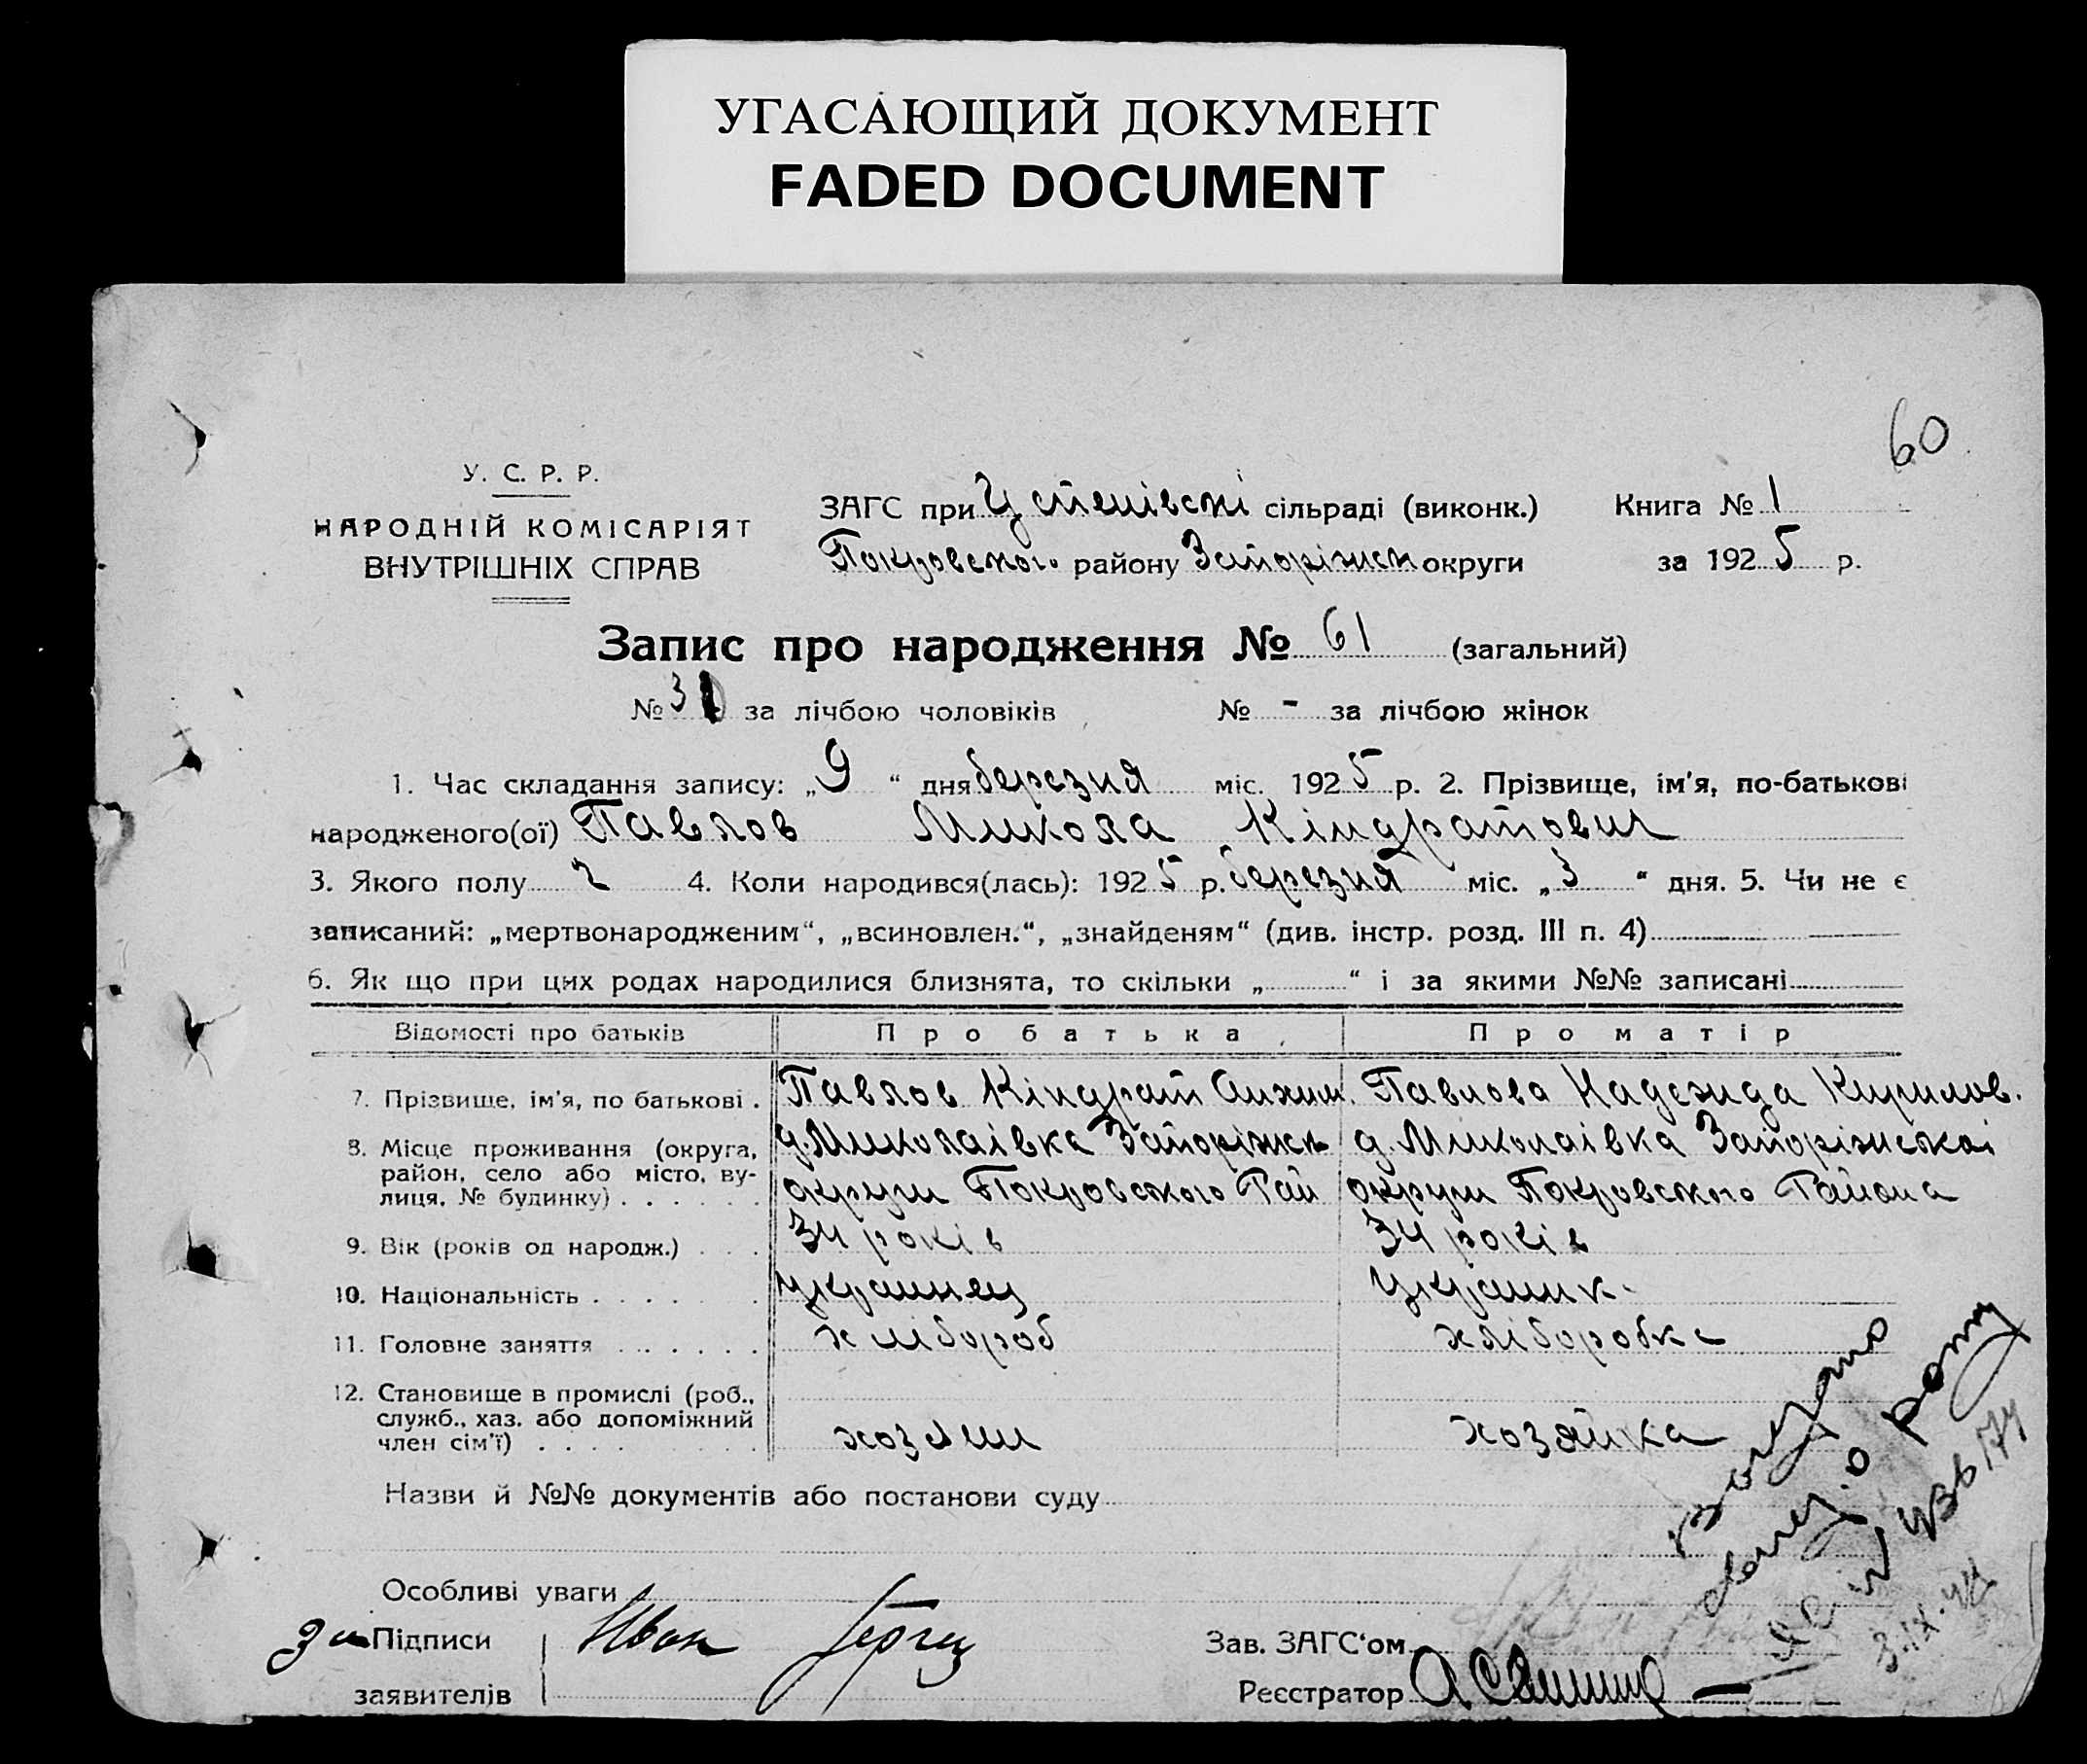 УГАСАЮЩИЙ ДОКУМЕНТ
FADED DOCUMENT
60
У. С. Р. Р.
НАРОДНІЙ КОМІСАРІЯТ
ВНУТРІШНІХ СПРАВ
ЗАГС при Устенівскі сільраді (виконк.) Книга № 1
Покровского району Запоріжск округи за 1925 р.
Запис про народження № 61 (загальний)
№ 31 за лічбою чоловіків № - за лічбою жінок
1. Час складання запису: „9“ дня березня міс. 1925 р. 2. Прізвище, ім'я, по-батькові
народженого(ої) Павлов Микола Кіндратович
3. Якого полу ч 4. Коли народився(лась): 1925 р. березня міс. „3“ дня. 5. Чи не є
записаний: „мертвонародженим“, „всиновлен.“, „знайденям“ (див. інстр. розд. III п. 4)
6. Як що при цих родах народилися близнята, то скільки „ “ і за якими №№ записані
Відомості про батьків Про батька Про матір
7. Прізвище, ім'я, по батькові . Павлов Кіндрат Павлова Надежда Кирилов.
8. Місце проживання (округа, район, село або місто, вулиця, № будинку) . . . . . . д. Миколаівка Запоріжск округи Покровского Рай д. Миколаівка Запоріжскоі округи Покровского Района
9. Вік (років од народж.) . . . 34 років 34 років
10. Національність . . . . . . украинец украинк.
11. Головне заняття . . . . . . хлібороб хліборобка
12. Становище в промислі (роб., служб., хаз. або допоміжний член сім'ї) . . . . . . хозяин хозяйка
Назви й №№ документів або постанови суду
Особливі уваги
за Підписи Иван
заявителів
Зав. ЗАГС'ом
Реєстратор
Выдано
о рожд